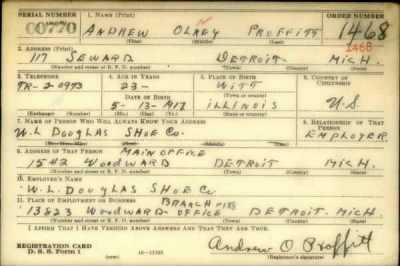 SERIAL NUMBER 1. NAME (Print) ORDER NUMBER
00770 ANDREW OLNEY PROFFITT 1468
(First) (Middle) (Last)
2. ADDRESS (Print) 1468
117 SEWARD DETROIT MICH.
(Number and street or R. F. D. number) (Town) (County) (State)
3. TELEPHONE 4. AGE IN YEARS 5. PLACE OF BIRTH 6. COUNTRY OF CITIZENSHIP
TR-2-0973 23 WITT
DATE OF BIRTH (Town or county)
5-13-1917 ILLINOIS U.S.
(Exchange) (Number) (Mo.) (Day) (Yr.) (State or country)
7. NAME OF PERSON WHO WILL ALWAYS KNOW YOUR ADDRESS 8. RELATIONSHIP OF THAT PERSON
W.L. DOUGLAS SHOE CO. EMPLOYER.
(Mr., Mrs., Miss) (First) (Middle) (Last)
9. ADDRESS OF THAT PERSON MAIN OFFICE
1542 WOODWARD DETROIT MICH.
(Number and street or R. F. D. number) (Town) (County) (State)
10. EMPLOYER'S NAME
W.L. DOUGLAS SHOE CO.
11. PLACE OF EMPLOYMENT OR BUSINESS BRANCH
13823 WOODWARD- OFFICE DETROIT- MICH
(Number and street or R. F. D. number) (Town) (County) (State)
I AFFIRM THAT I HAVE VERIFIED ABOVE ANSWERS AND THAT THEY ARE TRUE.
REGISTRATION CARD Andrew O. Proffitt
D. S. S. FORM 1 (over) (Registrant's signature)